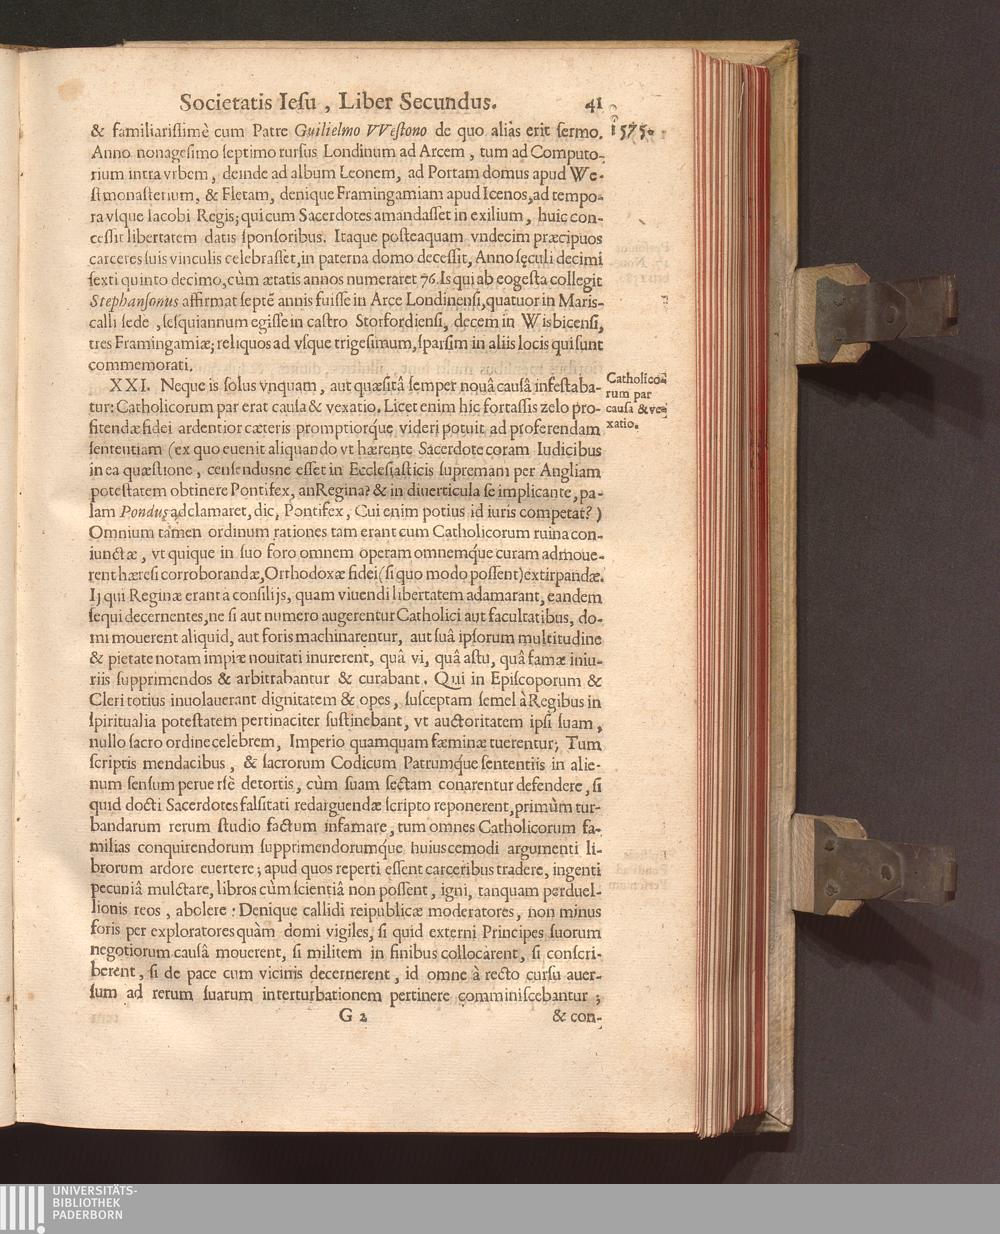 Societatis Iesu, Liber Secundus. 41
& familiarissimè cum Patre Guilielmo VVestono de quo aliàs erit sermo. 1575.
Anno nonagesimo septimo rursus Londinum ad Arcem, tum ad Computo-
rium intra vrbem, deinde ad album Leonem, ad Portam domus apud We-
stmonasterium, & Fletam, denique Framingamiam apud Icenos, ad tempo-
ra vsque Iacobi Regis; qui cum Sacerdotes amandasset in exilium, huic con-
cessit libertatem datis sponsoribus. Itaque posteaquam vndecim præcipuos
carceres suis vinculis celebrasset, in paterna domo decessit, Anno sęculi decimi
sexti quinto decimo, cùm ætatis annos numeraret 76. Is qui ab eo gesta collegit
Stephansonus affirmat septē annis fuisse in Arce Londinensi, quatuor in Maris-
calli sede, sesquiannum egisse in castro Storfordiensi, decem in Wisbicensi,
tres Framingamiæ; reliquos ad vsque trigesimum, sparsim in aliis locis qui sunt
commemorati.
XXI. Neque is solus vnquam, aut quæsitâ semper nouâ causâ infestaba-
tur: Catholicorum par erat causa & vexatio. Licet enim hic fortassis zelo pro-
fitendæ fidei ardentior cæteris promptiorq́ue videri potuit ad proferendam
sententiam (ex quo euenit aliquando vt hærente Sacerdote coram Iudicibus
in ea quæstione, censendusne esset in Ecclesiasticis supremam per Angliam
potestatem obtinere Pontifex, an Regina? & in diuerticula se implicante, pa-
lam Pondus adclamaret, dic, Pontifex, Cui enim potius id iuris competat?)
Omnium tamen ordinum rationes tam erant cum Catholicorum ruina con-
iunctæ, vt quique in suo foro omnem operam omnemq́ue curam admoue-
rent hæresi corroborandæ, Orthodoxæ fidei (si quo modo possent) extirpandæ.
Ij qui Reginæ erant à consilijs, quam viuendi libertatem adamarant, eandem
sequi decernentes, ne si aut numero augerentur Catholici aut facultatibus, do-
mi mouerent aliquid, aut foris machinarentur, aut suâ ipsorum multitudine
& pietate notam impiæ nouitati inurerent, quâ vi, quâ astu, quâ famæ iniu-
riis supprimendos & arbitrabantur & curabant. Qui in Episcoporum &
Cleri totius inuolauerant dignitatem & opes, susceptam semel à Regibus in
spiritualia potestatem pertinaciter sustinebant, vt auctoritatem ipsi suam,
nullo sacro ordine celebrem, Imperio quamquam fæminæ tuerentur; Tum
scriptis mendacibus, & sacrorum Codicum Patrumq́ue sententiis in alie-
num sensum peruersè detortis, cùm suam sectam conarentur defendere, si
quid docti Sacerdotes falsitati redarguendæ scripto reponerent, primùm tur-
bandarum rerum studio factum infamare, tum omnes Catholicorum fa-
milias conquirendorum supprimendorumq́ue huiuscemodi argumenti li-
brorum ardore euertere; apud quos reperti essent carceribus tradere, ingenti
pecuniâ mulctare, libros cùm scientiâ non possent, igni, tanquam perduel-
lionis reos, abolere: Denique callidi reipublicæ moderatores, non minus
foris per exploratores quàm domi vigiles, si quid externi Principes suorum
negotiorum causâ mouerent, si militem in finibus collocarent, si conscri-
berent, si de pace cum vicinis decernerent, id omne à recto cursu auer-
sum ad rerum suarum interturbationem pertinere comminiscebantur;
G 2 & con-
Catholico-
rum par
causa & ve-
xatio.
UNIVERSITÄTS-
BIBLIOTHEK
PADERBORN